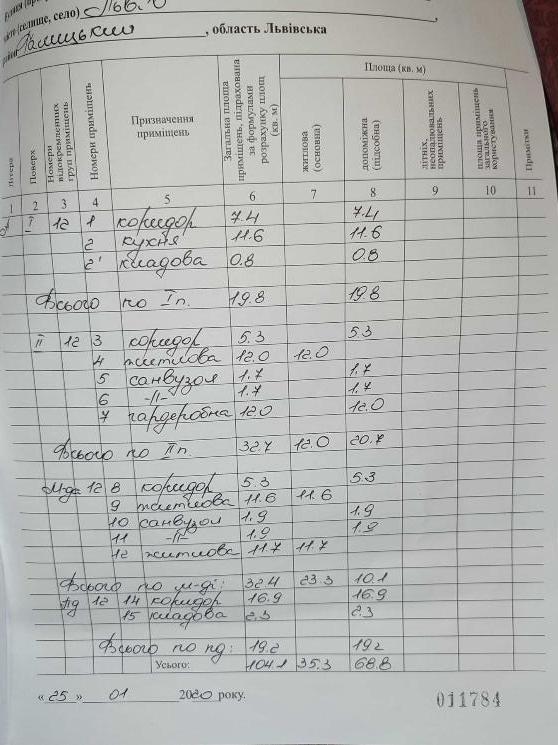 місто (селище, село) Львів,
район Галицький, область Львівська
Літера
Поверх
Номери відокремленних груп приміщень
Номери приміщень
Призначення приміщень
Загальна площа приміщень, підрахована за формулами розрахунку площ (кв. м)
Площа (кв. м)
житлова (основна)
допоміжна (підсобна)
літніх, неопалювальних приміщень
площа приміщень загального користування
Примітки
1 2 3 4 5 6 7 8 9 10 11
I 12 1 коридор 7.4 7.4
2 кухня 11.6 11.6
2' кладова 0.8 0.8
Всього по I п. 19.8 19.8
II 12 3 коридор 5.3 5.3
4 житлова 12.0 12.0
5 санвузол 1.7 1.7
6 -||- 1.7 1.7
7 гардеробна 12.0 12.0
Всього по II п. 32.7 12.0 20.7
М-да 12 8 коридор 5.3 5.3
9 житлова 11.6 11.6
10 санвузол 1.9 1.9
11 -||- 1.9 1.9
12 житлова 11.7 11.7
Всього по м-ді: 32.4 23.3 10.1
пд 12 14 коридор 16.9 16.9
15 кладова 2.3 2.3
Всього по пд: 19.2 19.2
Усього: 104.1 35.3 68.8
« 25 » 01 2020 року.
011784